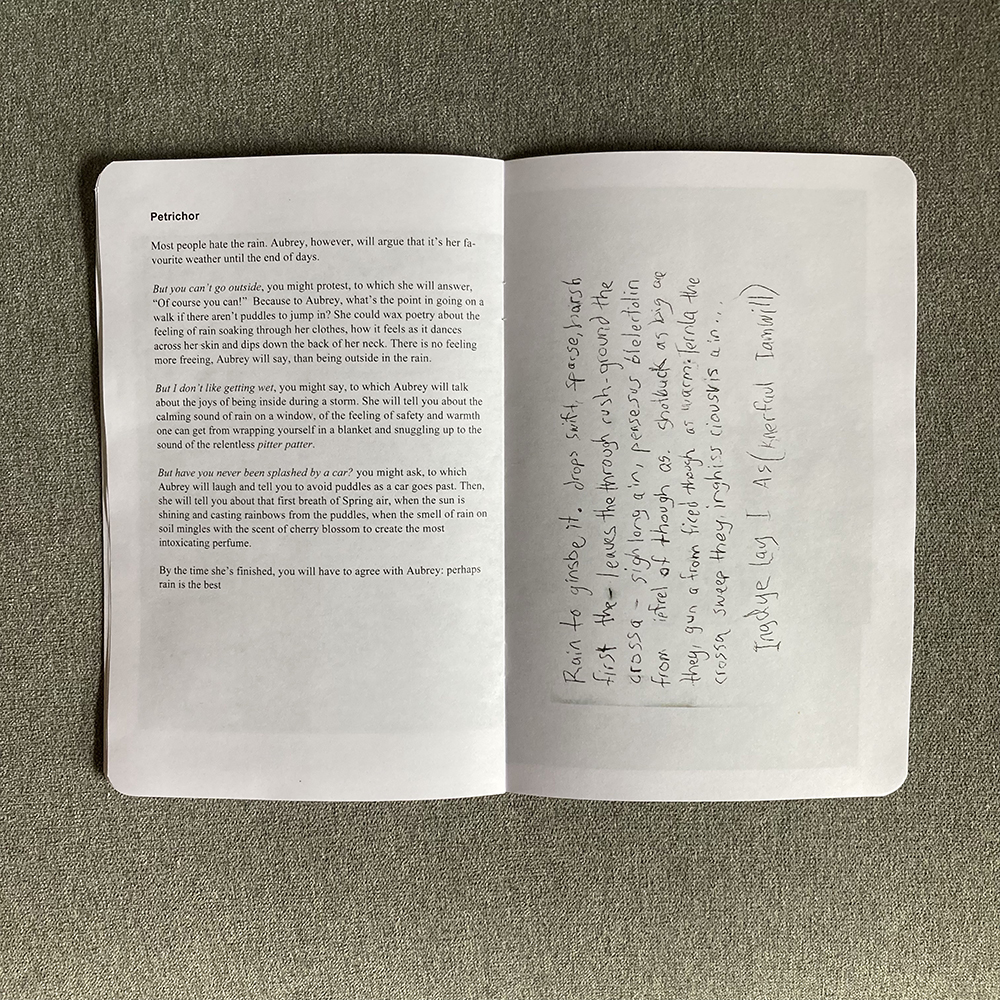 Petrichor
Most people hate the rain. Aubrey, however, will argue that it's her fa-
vourite weather until the end of days.
But you can't go outside, you might protest, to which she will answer,
“Of course you can!” Because to Aubrey, what's the point in going on a
walk if there aren't puddles to jump in? She could wax poetry about the
feeling of rain soaking through her clothes, how it feels as it dances
across her skin and dips down the back of her neck. There is no feeling
more freeing, Aubrey will say, than being outside in the rain.
But I don't like getting wet, you might say, to which Aubrey will talk
about the joys of being inside during a storm. She will tell you about the
calming sound of rain on a window, of the feeling of safety and warmth
one can get from wrapping yourself in a blanket and snuggling up to the
sound of the relentless pitter patter.
But have you never been splashed by a car? you might ask, to which
Aubrey will laugh and tell you to avoid puddles as a car goes past. Then,
she will tell you about that first breath of Spring air, when the sun is
shining and casting rainbows from the puddles, when the smell of rain on
soil mingles with the scent of cherry blossom to create the most
intoxicating perfume.
By the time she's finished, you will have to agree with Aubrey: perhaps
rain is the best
Rain to ginsbe it. drops swift, sparse, harsh
first the - leaves the through rush-ground the
crossa - sigh long ain,
from of though as. shotbuck as big are
they, gun a from fired though as warm: the
crossa sweep they, ain...
lay I As